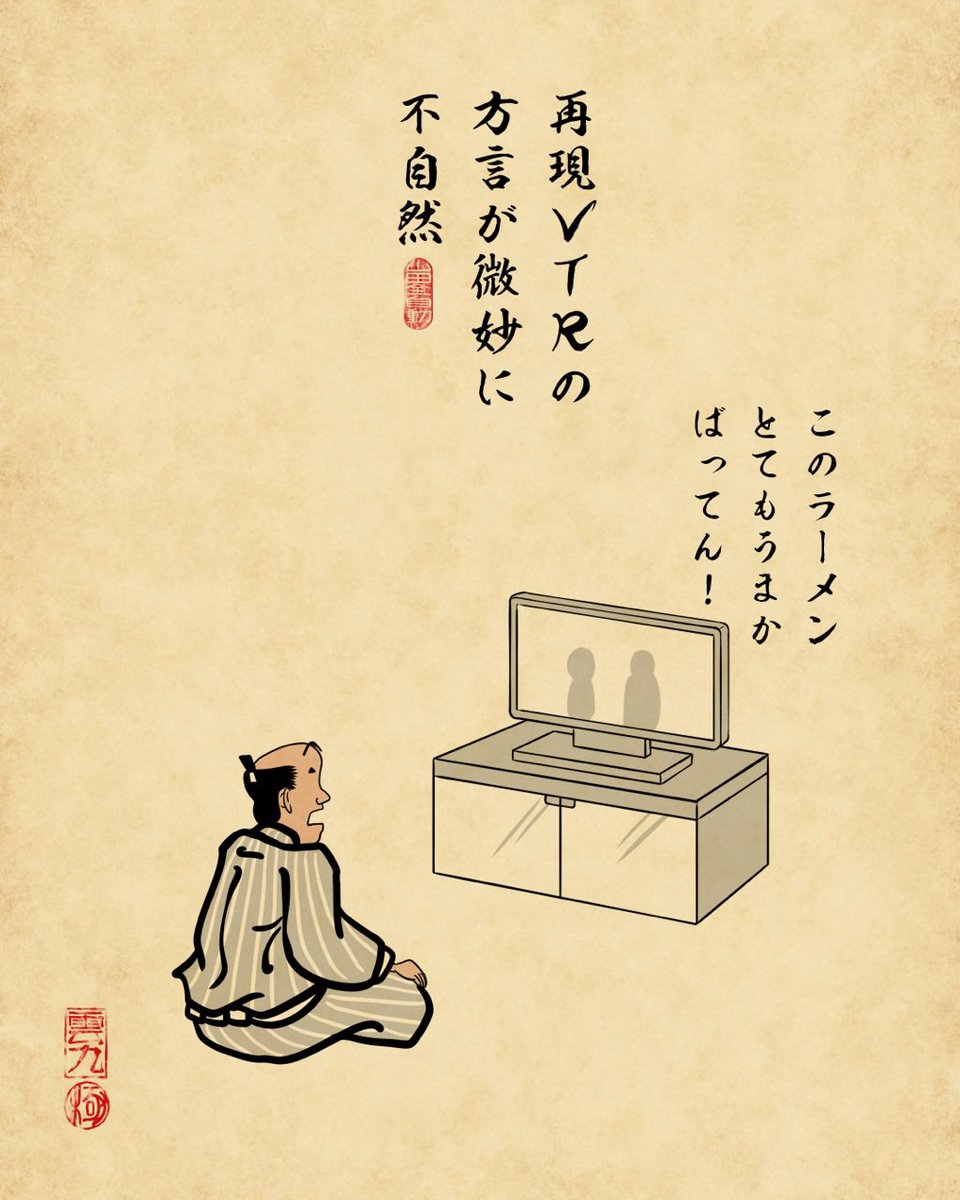 再現VTRの
方言が微妙に
不自然
このラーメン
とてもうまか
ばってん!